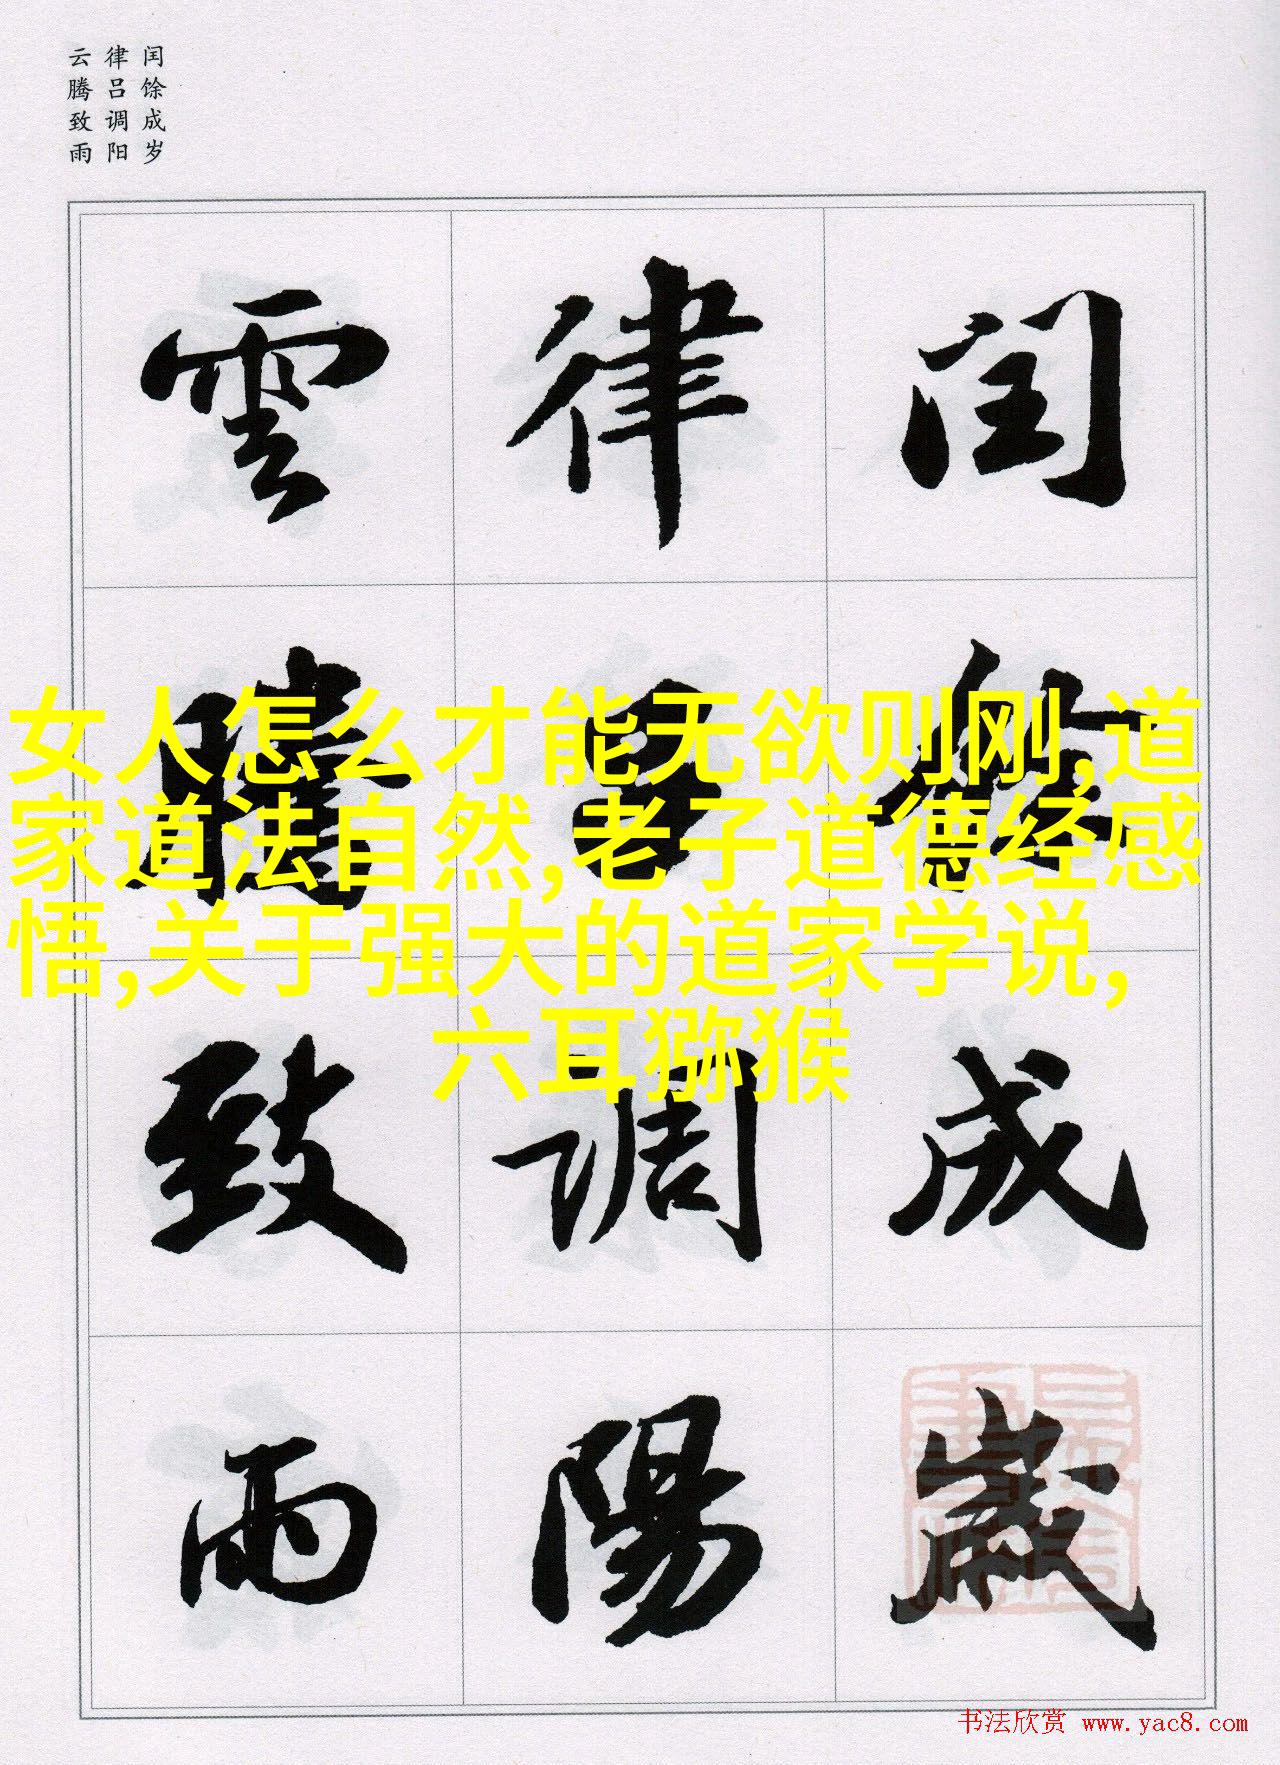 闰馀成岁
律吕调阳
云腾致雨
闰馀成歲
律吕调陽
雲騰致雨
女人怎么才能无欲则刚,道
家道法自然,老子道德经感
悟,关于强大的道家学说,
六耳猕猴
书法欣赏 www.yac8.com